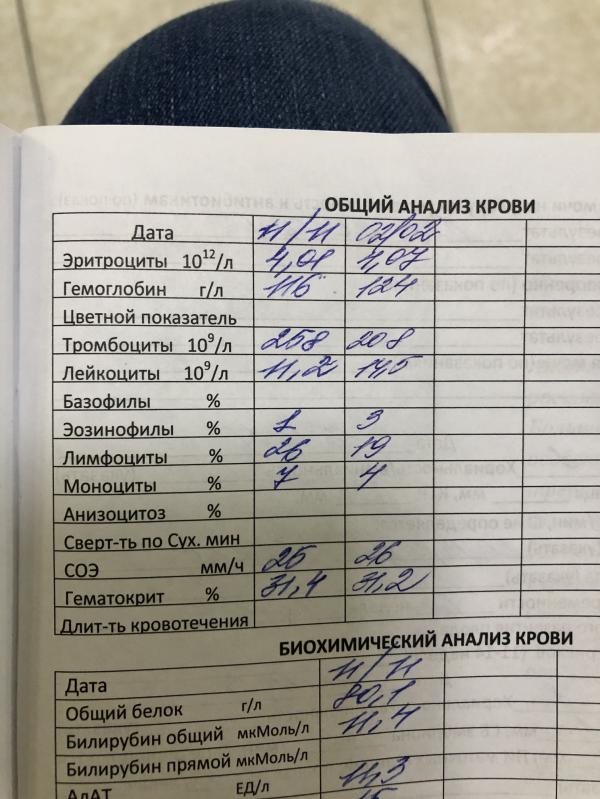 ОБЩИЙ АНАЛИЗ КРОВИ
Дата 11/11 02/02
Эритроциты 10¹²/л 4,01 4,07
Гемоглобин г/л 116 124
Цветной показатель
Тромбоциты 10⁹/л 258 208
Лейкоциты 10⁹/л 11,2
Базофилы %
Эозинофилы % 1 3
Лимфоциты % 26 19
Моноциты % 7
Анизоцитоз %
Сверт-ть по Сух. мин
СОЭ мм/ч 25 26
Гематокрит % 31,4 31,2
Длит-ть кровотечения
БИОХИМИЧЕСКИЙ АНАЛИЗ КРОВИ
Дата 11/11
Общий белок г/л 80,1
Билирубин общий мкМоль/л 11,4
Билирубин прямой мкМоль/л
АлАТ ЕД/л 11,3